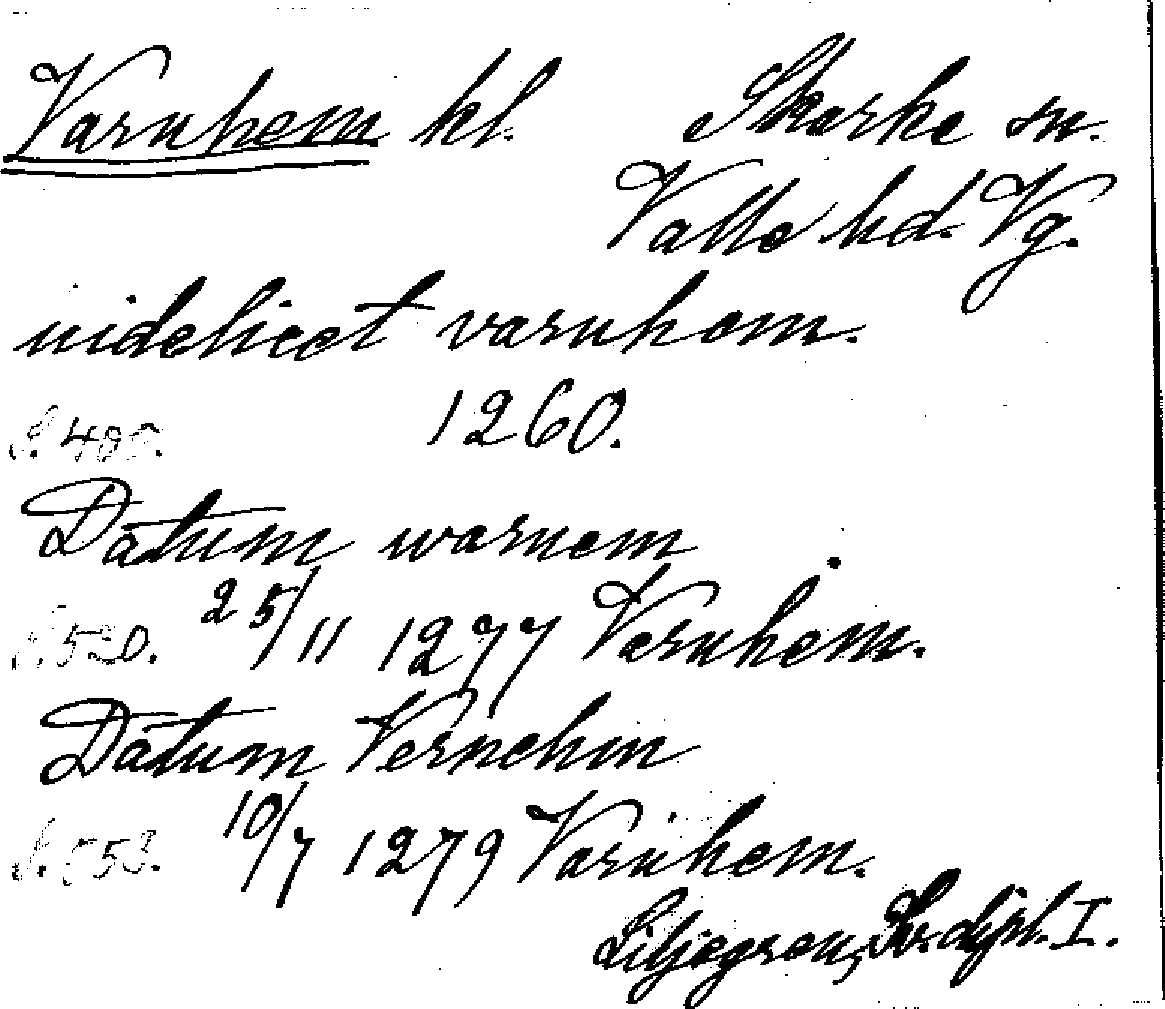 Varnhem kl. Skarke sn.
Valle hd. Vg.
uidelicet varnhem.
S. 400. 1260.
Datum warnem.
S. 520. 25/11 1277 Varnhem.
Datum Vernehm
S. 553. 10/7 1279 Varnhem.
Liljegren, Sv. dipl. I.